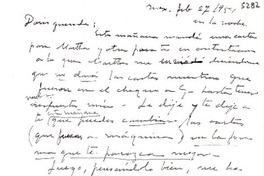 Mex. Feb 27/1954
5282
en la noche.
Doris querida:
Esta mañana mandé una carta
para Martha y otra para ti en contestación
a la que Martha me envió diciéndome
que no dará las cartas nuestras que
fueron con el cheque a hasta tener
respuesta mía. Le dije y te dije a
ti esta mañana que puedes cambiar las cartas
(que fueron a máquina) en la forma
que te parezca mejor.
Luego, pensándolo bien, me has